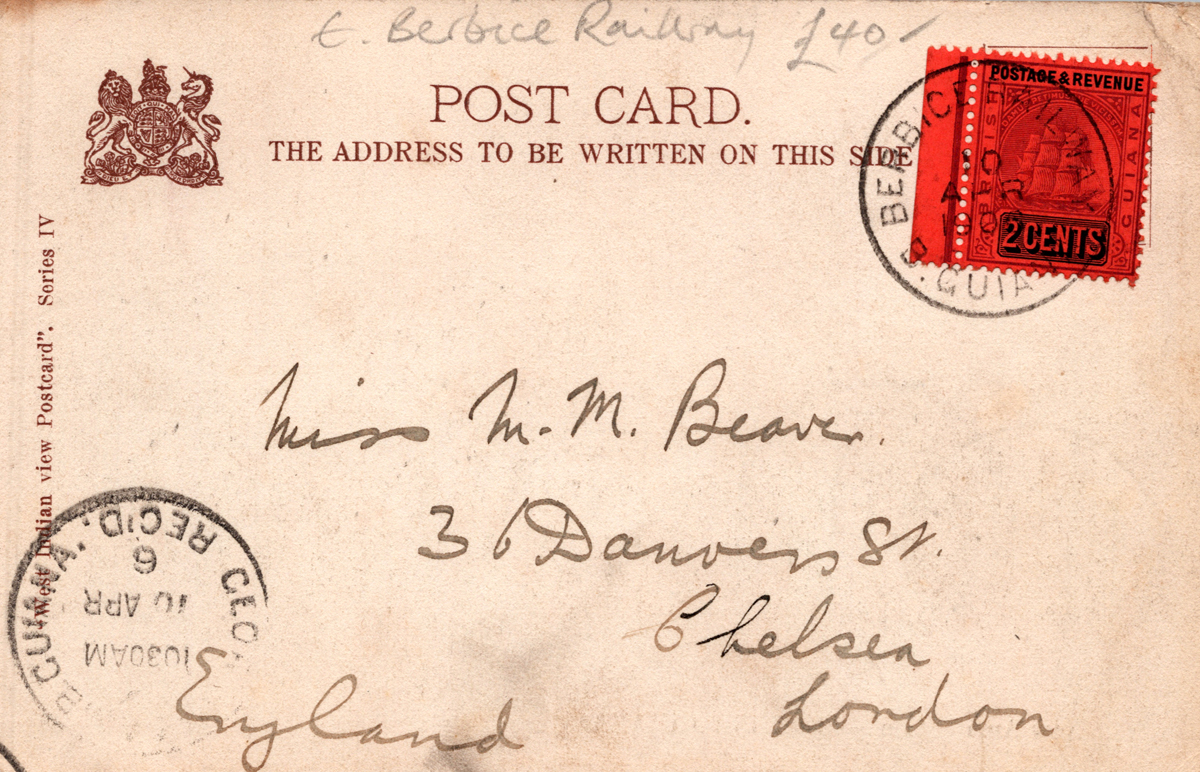 E. Berbice Railway £40/
POST CARD.
THE ADDRESS TO BE WRITTEN ON THIS SIDE
POSTAGE & REVENUE
BRITISH
GUIANA
2 CENTS
BERBICE RAILWAY
10
AP
B. GUIANA
"West Indian view Postcard". Series IV
Miss M. M. Beaver.
36 Danvers St.
Chelsea
London
England
B. GUIANA. REC'D. GEO
1030AM
10 APR